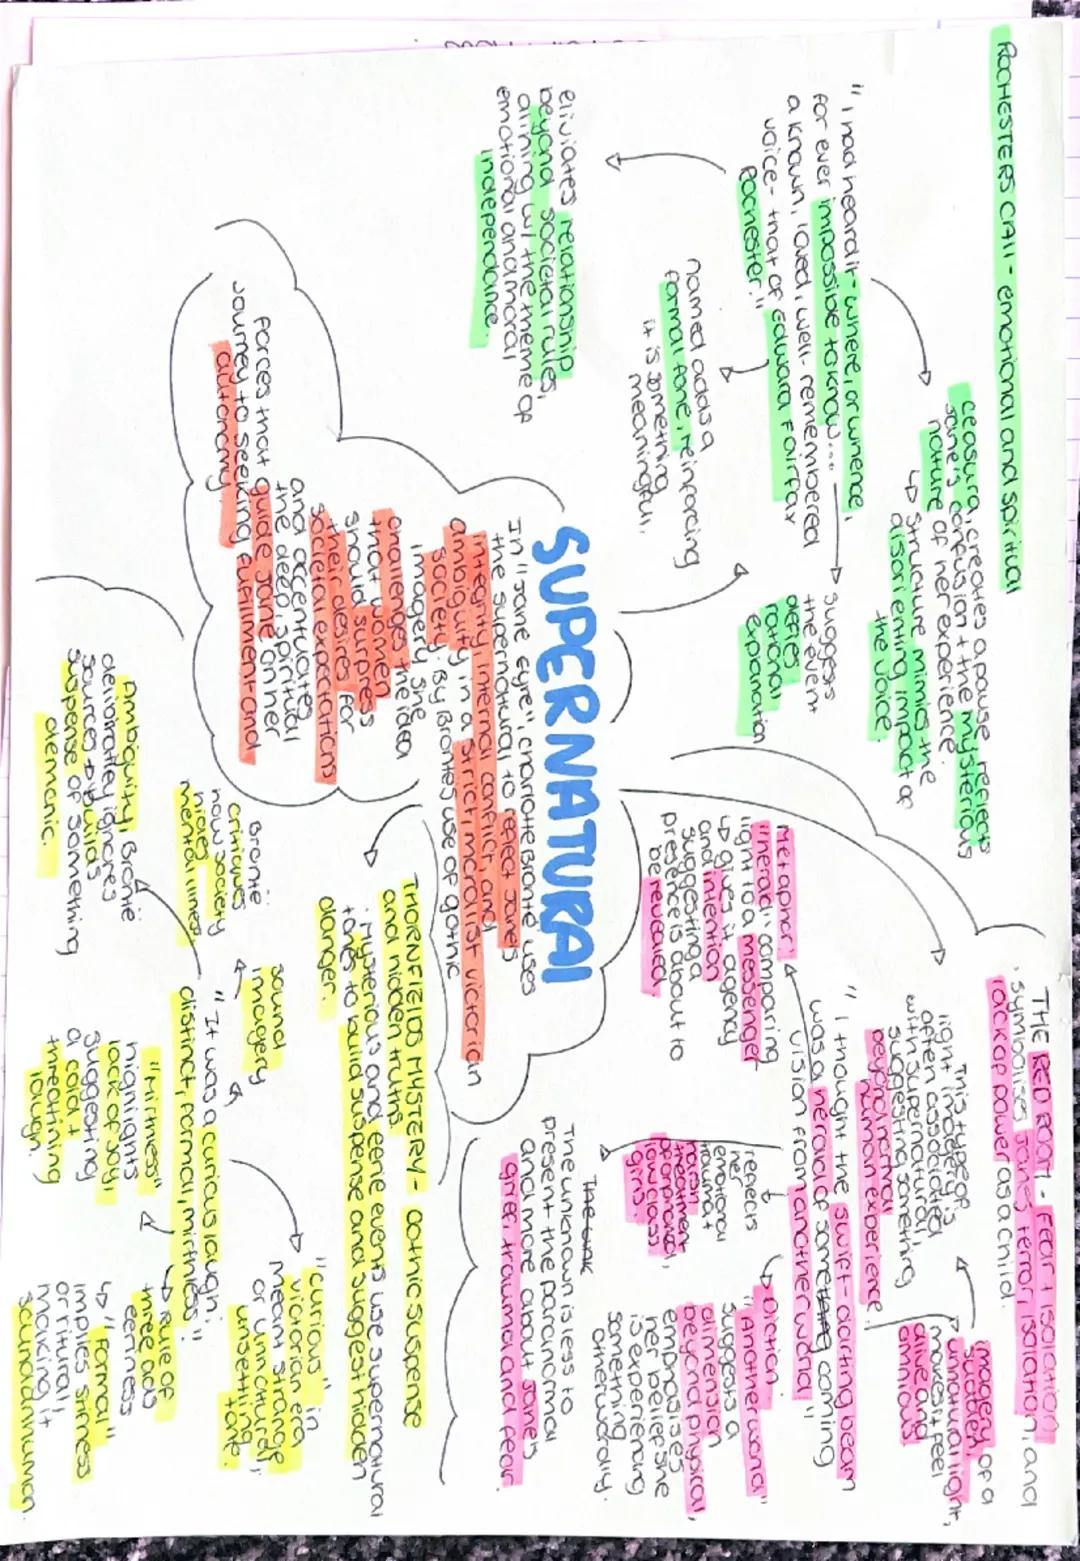 ROCHESTERS CALL - emotional and spiritual
"I had heard it - where, or whence,
for ever impossible to know...
a known, loved, well-remembered
voice - that of Edward Fairfax
Rochester."
ceasura, creates a pause, reflects
Jane's confusion + the mysterious
nature of her experience.
↳ structure mimics the
disorienting impact of
the voice.
suggests
the event
defies
rational
explanation
named adds a
formal tone, reinforcing
it is something
meaningful.
eliviates relationship
beyond societal rules,
alining w/ the theme of
emotional and moral
independance.
SUPERNATURAL
In "Jane Eyre", Charlotte Brontë uses
the supernatural to reflect Jane's
integrity, internal conflict, and
ambiguity in a strict moralist victorian
society. By Brontës use of gothic
imagery, she
challenges the idea
that women
should surpress
their desires for
societal expectations
and accentuates
the deep, spiritual
forces that guide Jane on her
journey to seeking fulfilment and
autonomy.
THE RED ROOM - Fear + isolation
· symbolises Janes terror, isolation, and
lack of power as a child.
This type of
light imagery is
often associated
with supernatural,
suggesting something
beyond normal
human experience.
imagery of a
sudden,
unnatural light,
makes it feel
alive and
ominous
"I thought the swift-darting beam
was a herald of some coming
vision from another world"
Metaphor:
"herald" comparing
light to a messenger
↳ gives it agency
and intention
suggesting a
presence is about to
be revealed.
reflects
her
emotional
trauma +
harsh
treatment
of orphaned,
low class
girls.
↳ Diction
"Another world"
suggests a
dimension
beyond physical,
emphasises
her belief she
is experiencing
something
otherworldly.
The unknown is less to
present the paranormal
and more about Jane's
grief, trauma and fear.
THORNFIELDS MYSTERY - Gothic suspense
and hidden truths.
· Mysterious and eerie events use supernatural
tones to build suspense and suggest hidden
danger.
"It was a curious laugh;
distinct, formal, mirthless."
sound
imagery
Brontë
critiques
how society
hides
mental illness
Ambiguity, Brontë
delibratley ignores
sources to build
suspense of something
demonic.
"Mirthless"
highlights
lack of joy,
suggesting
a cold +
threatining
laugh.
"curious" in
victorian era
meant strange
or unnatural,
unsettling
tone.
↳ Rule of
three adds
eeriness
↳ "Formal"
implies stiffness
or ritural,
making it
sound unhuman.